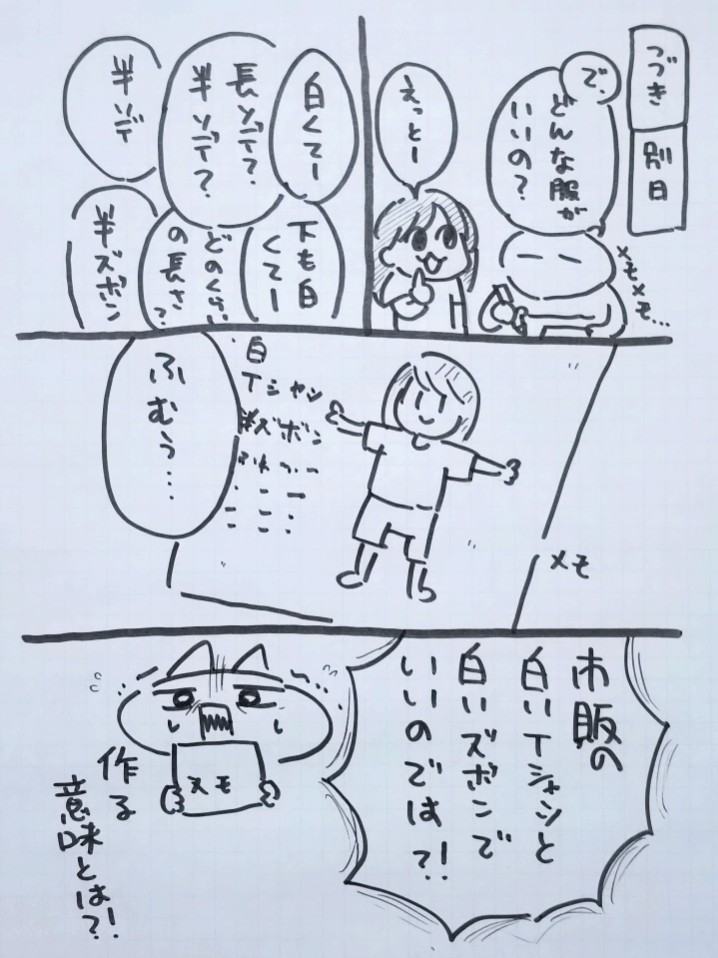 つづき
別日
で、
どんな服が
いいの？
メモメモ…
えっとー
白くてー
長ソデ？
半ソデ？
半ソデ
下も白
くてー
どのくらい
の長さ？
半ズボン
メモ
白
Tシャツ
半ズボン
ふむぅ…
市販の
白いTシャツと
白いズボンで
いいのでは？！
メモ
作る
意味とは？！